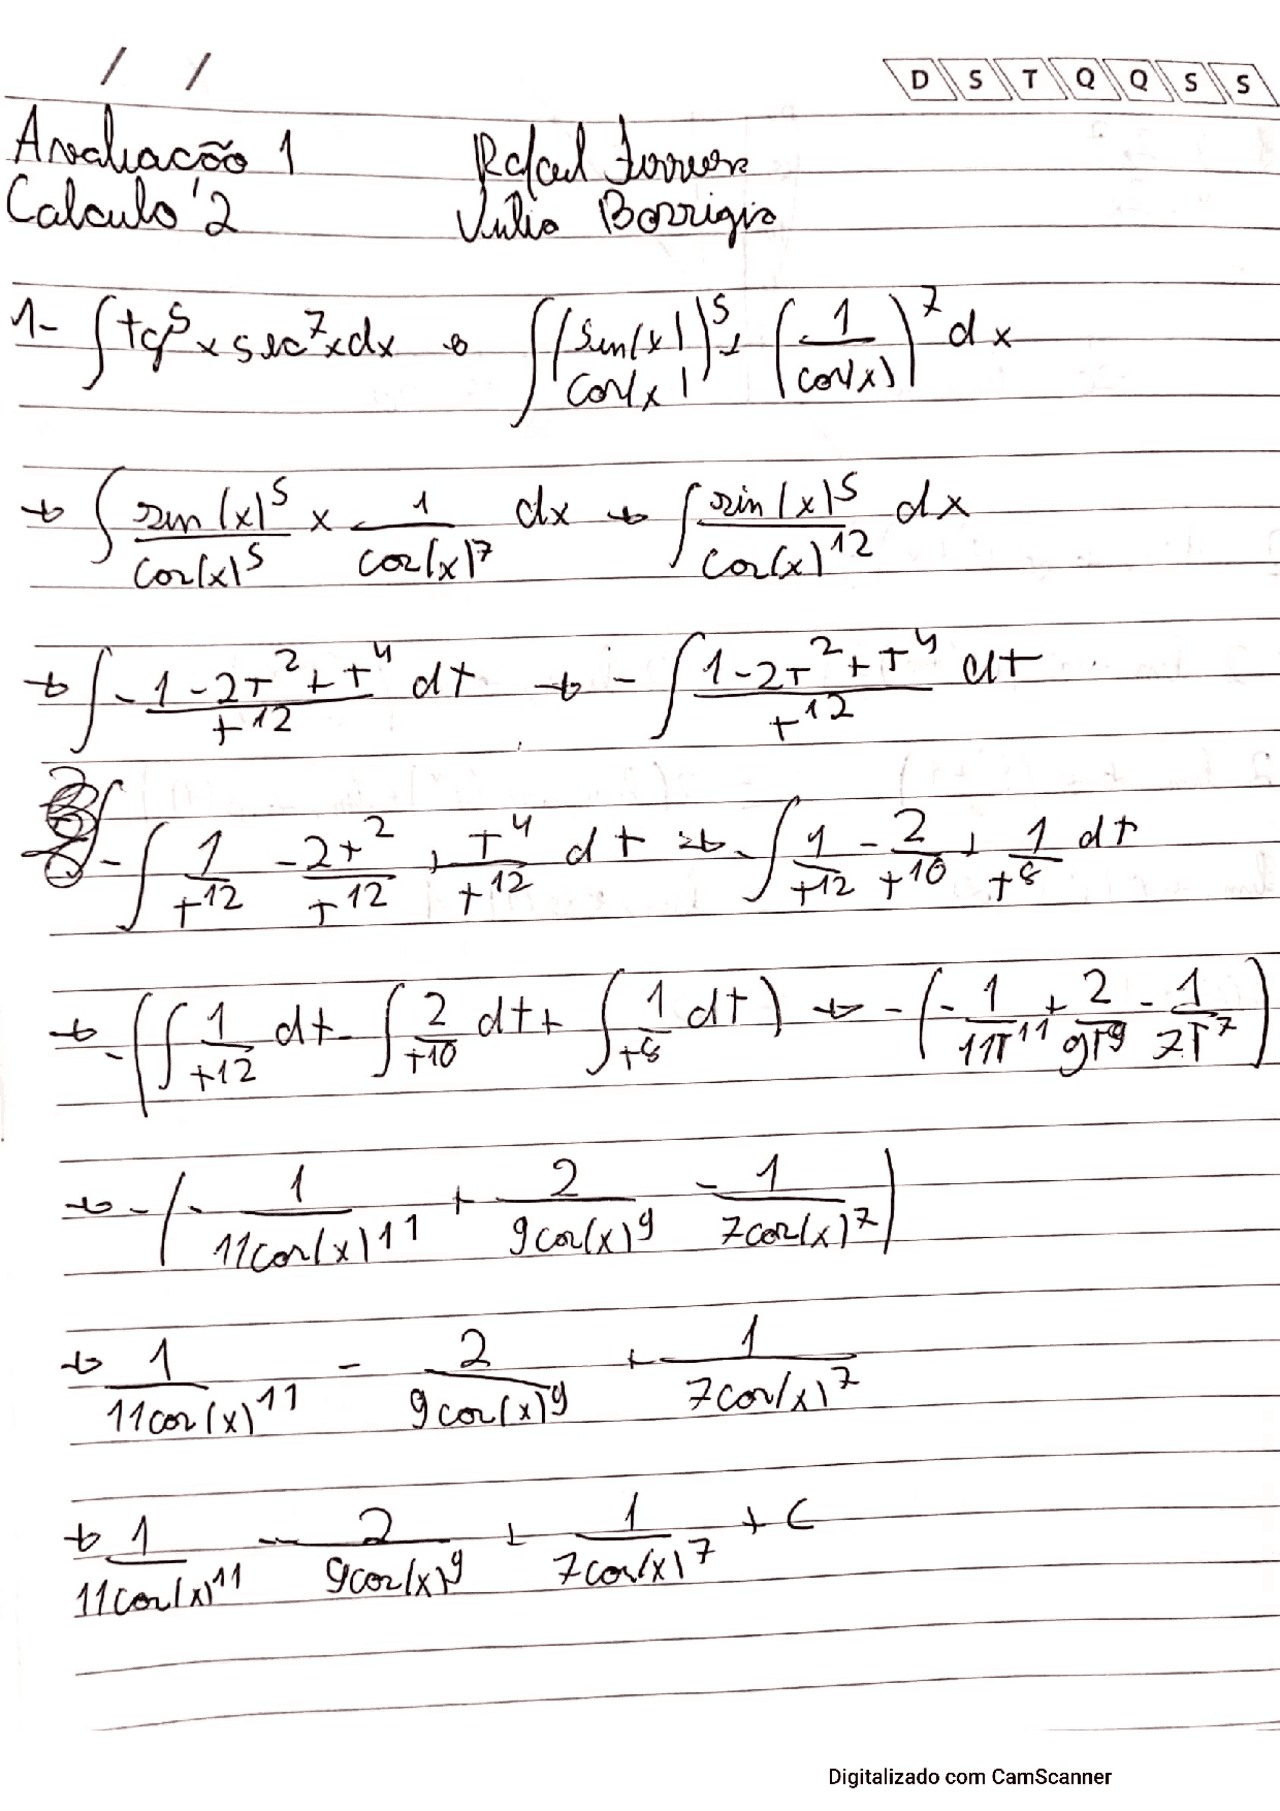 D S T Q Q S S
Avaliação 1 Rafael
Calculo 2 Julia
1- ∫ tg⁵x sec⁷x dx → ∫ (sin(x)/cos(x))⁵ × (1/cos(x))⁷ dx
→ ∫ sin(x)⁵/cos(x)⁵ × 1/cos(x)⁷ dx → ∫ sin(x)⁵/cos(x)¹² dx
→ ∫ - (1-2t²+t⁴)/t¹² dt → - ∫ (1-2t²+t⁴)/t¹² dt
- ∫ 1/t¹² - 2t²/t¹² + t⁴/t¹² dt → - ∫ 1/t¹² - 2/t¹⁰ + 1/t⁸ dt
→ - (∫ 1/t¹² dt - ∫ 2/t¹⁰ dt + ∫ 1/t⁸ dt) → - (- 1/11t¹¹ + 2/9t⁹ - 1/7t⁷)
→ - (- 1/11cos(x)¹¹ + 2/9cos(x)⁹ - 1/7cos(x)⁷)
→ 1/11cos(x)¹¹ - 2/9cos(x)⁹ + 1/7cos(x)⁷
→ 1/11cos(x)¹¹ - 2/9cos(x)⁹ + 1/7cos(x)⁷ + C
Digitalizado com CamScanner